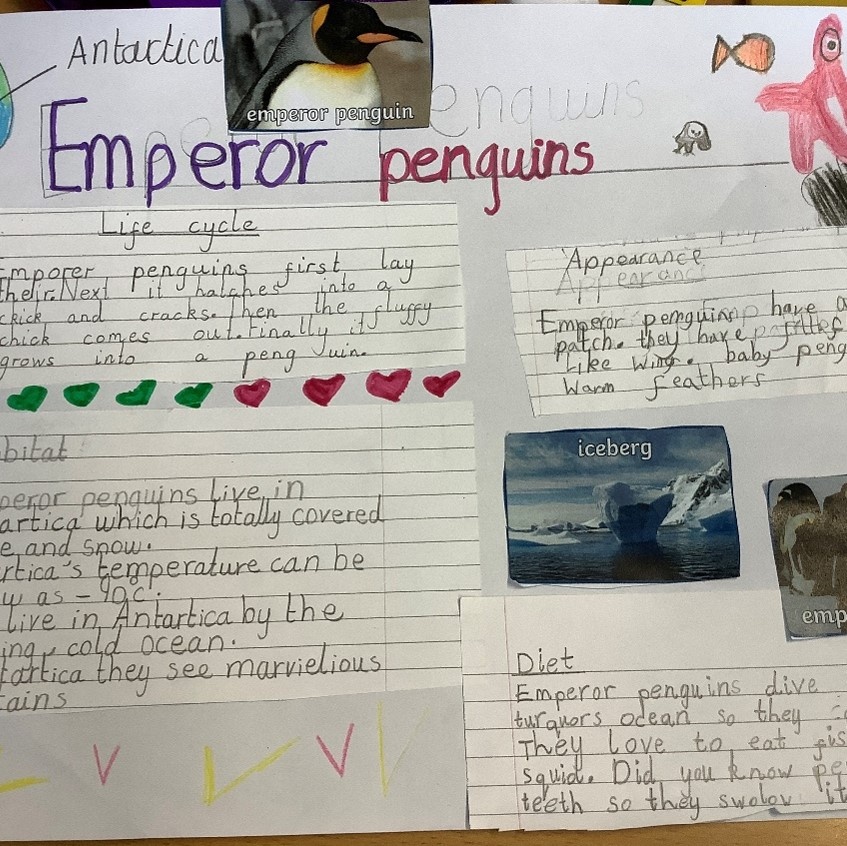 Antarctica
emperor penguin
enguins
Emperor penguins
Life cycle
Emporer penguins first lay
their. Next it hatches into a
chick and cracks. Then the fluffy
chick comes out. Finally it
grows into a penguin.
Appearance
Appearance
Emperor pemguins have a
patch. they have
Like wing. baby peng
Warm feathers
bitat
peror penguins live in
artica which is totally covered
e and snow.
rtica's temperature can be
w as -
live in Antartica by the
ing, cold ocean.
tartica they see marvielious
tains
iceberg
emp
Diet
Emperor penguins dive
turquors odean so they
They love to eat fis
squid. Did you know pe
teeth so they swolov it